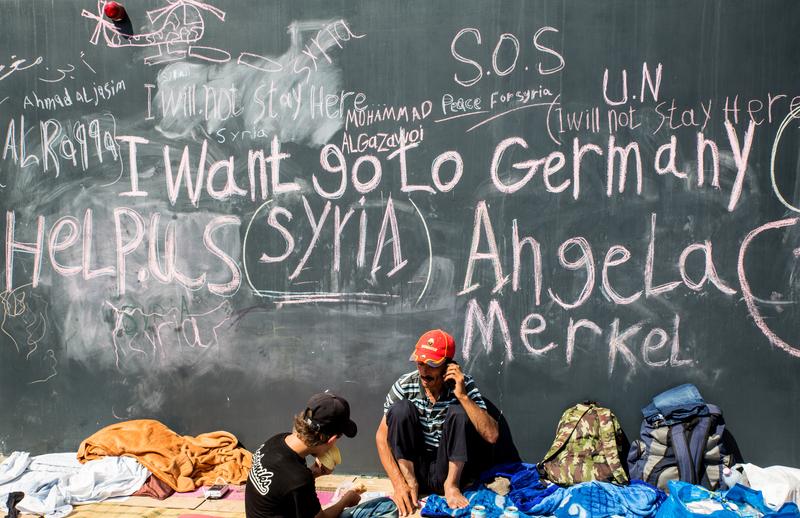 Syria
S.O.S
U.N
Peace For syria
Ahmad aL jasim
I will not stay Here
MOHAMMAD
ALGazawoi
I will not stay Here
Syria
ALRaqqa
I Want goto Germany
HeLP.US
(SYRiA)
AngeLa
MerkeL
Syria